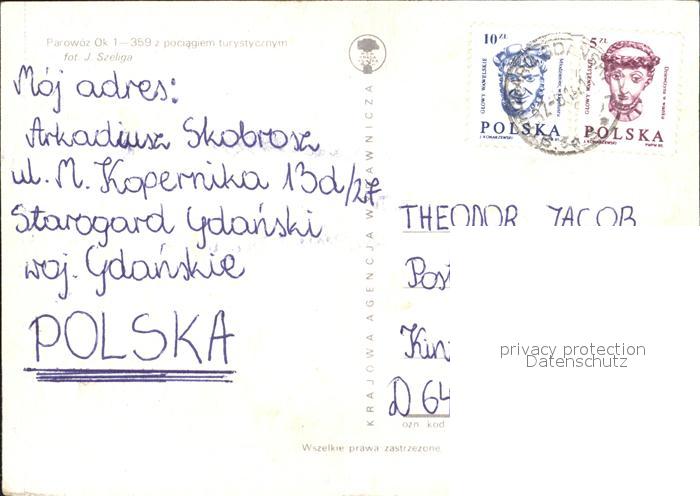 Parowóz Ok 1—359 z pociągiem turystycznym
fot. J. Szeliga
Mój adres:
Arkadiusz Skobrosz
ul. M. Kopernika 13d/27
Starogard Gdański
woj. Gdańskie
POLSKA
KRAJOWA AGENCJA WYDAWNICZA
10 zł
GŁOWY WAWELSKIE
POLSKA
5 zł
GŁOWY WAWELSKIE
POLSKA
THEODOR JACOB
Post
Kin
D 64
ozn. kod
Wszelkie prawa zastrzeżone
privacy protection
Datenschutz